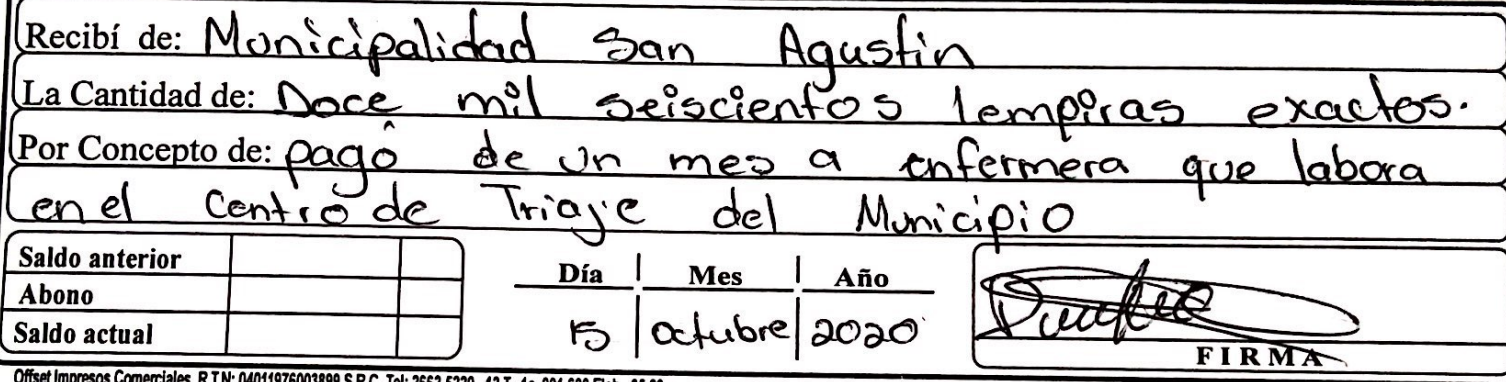 Recibí de: Municipalidad San Agustin
La Cantidad de: Doce mil seiscientos lempiras exactos.
Por Concepto de: pago de un mes a enfermera que labora
en el Centro de Triaje del Municipio
Saldo anterior
Abono
Saldo actual
Día Mes Año
15 octubre 2020
FIRMA
Offset Impresos Comerciales R.T.N: 04011976003899 S.R.C. Tel: 2662-5220